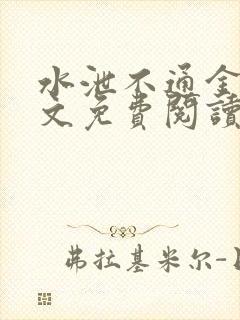 水泄不通全
文免費閱讀
弗拉基米尔-